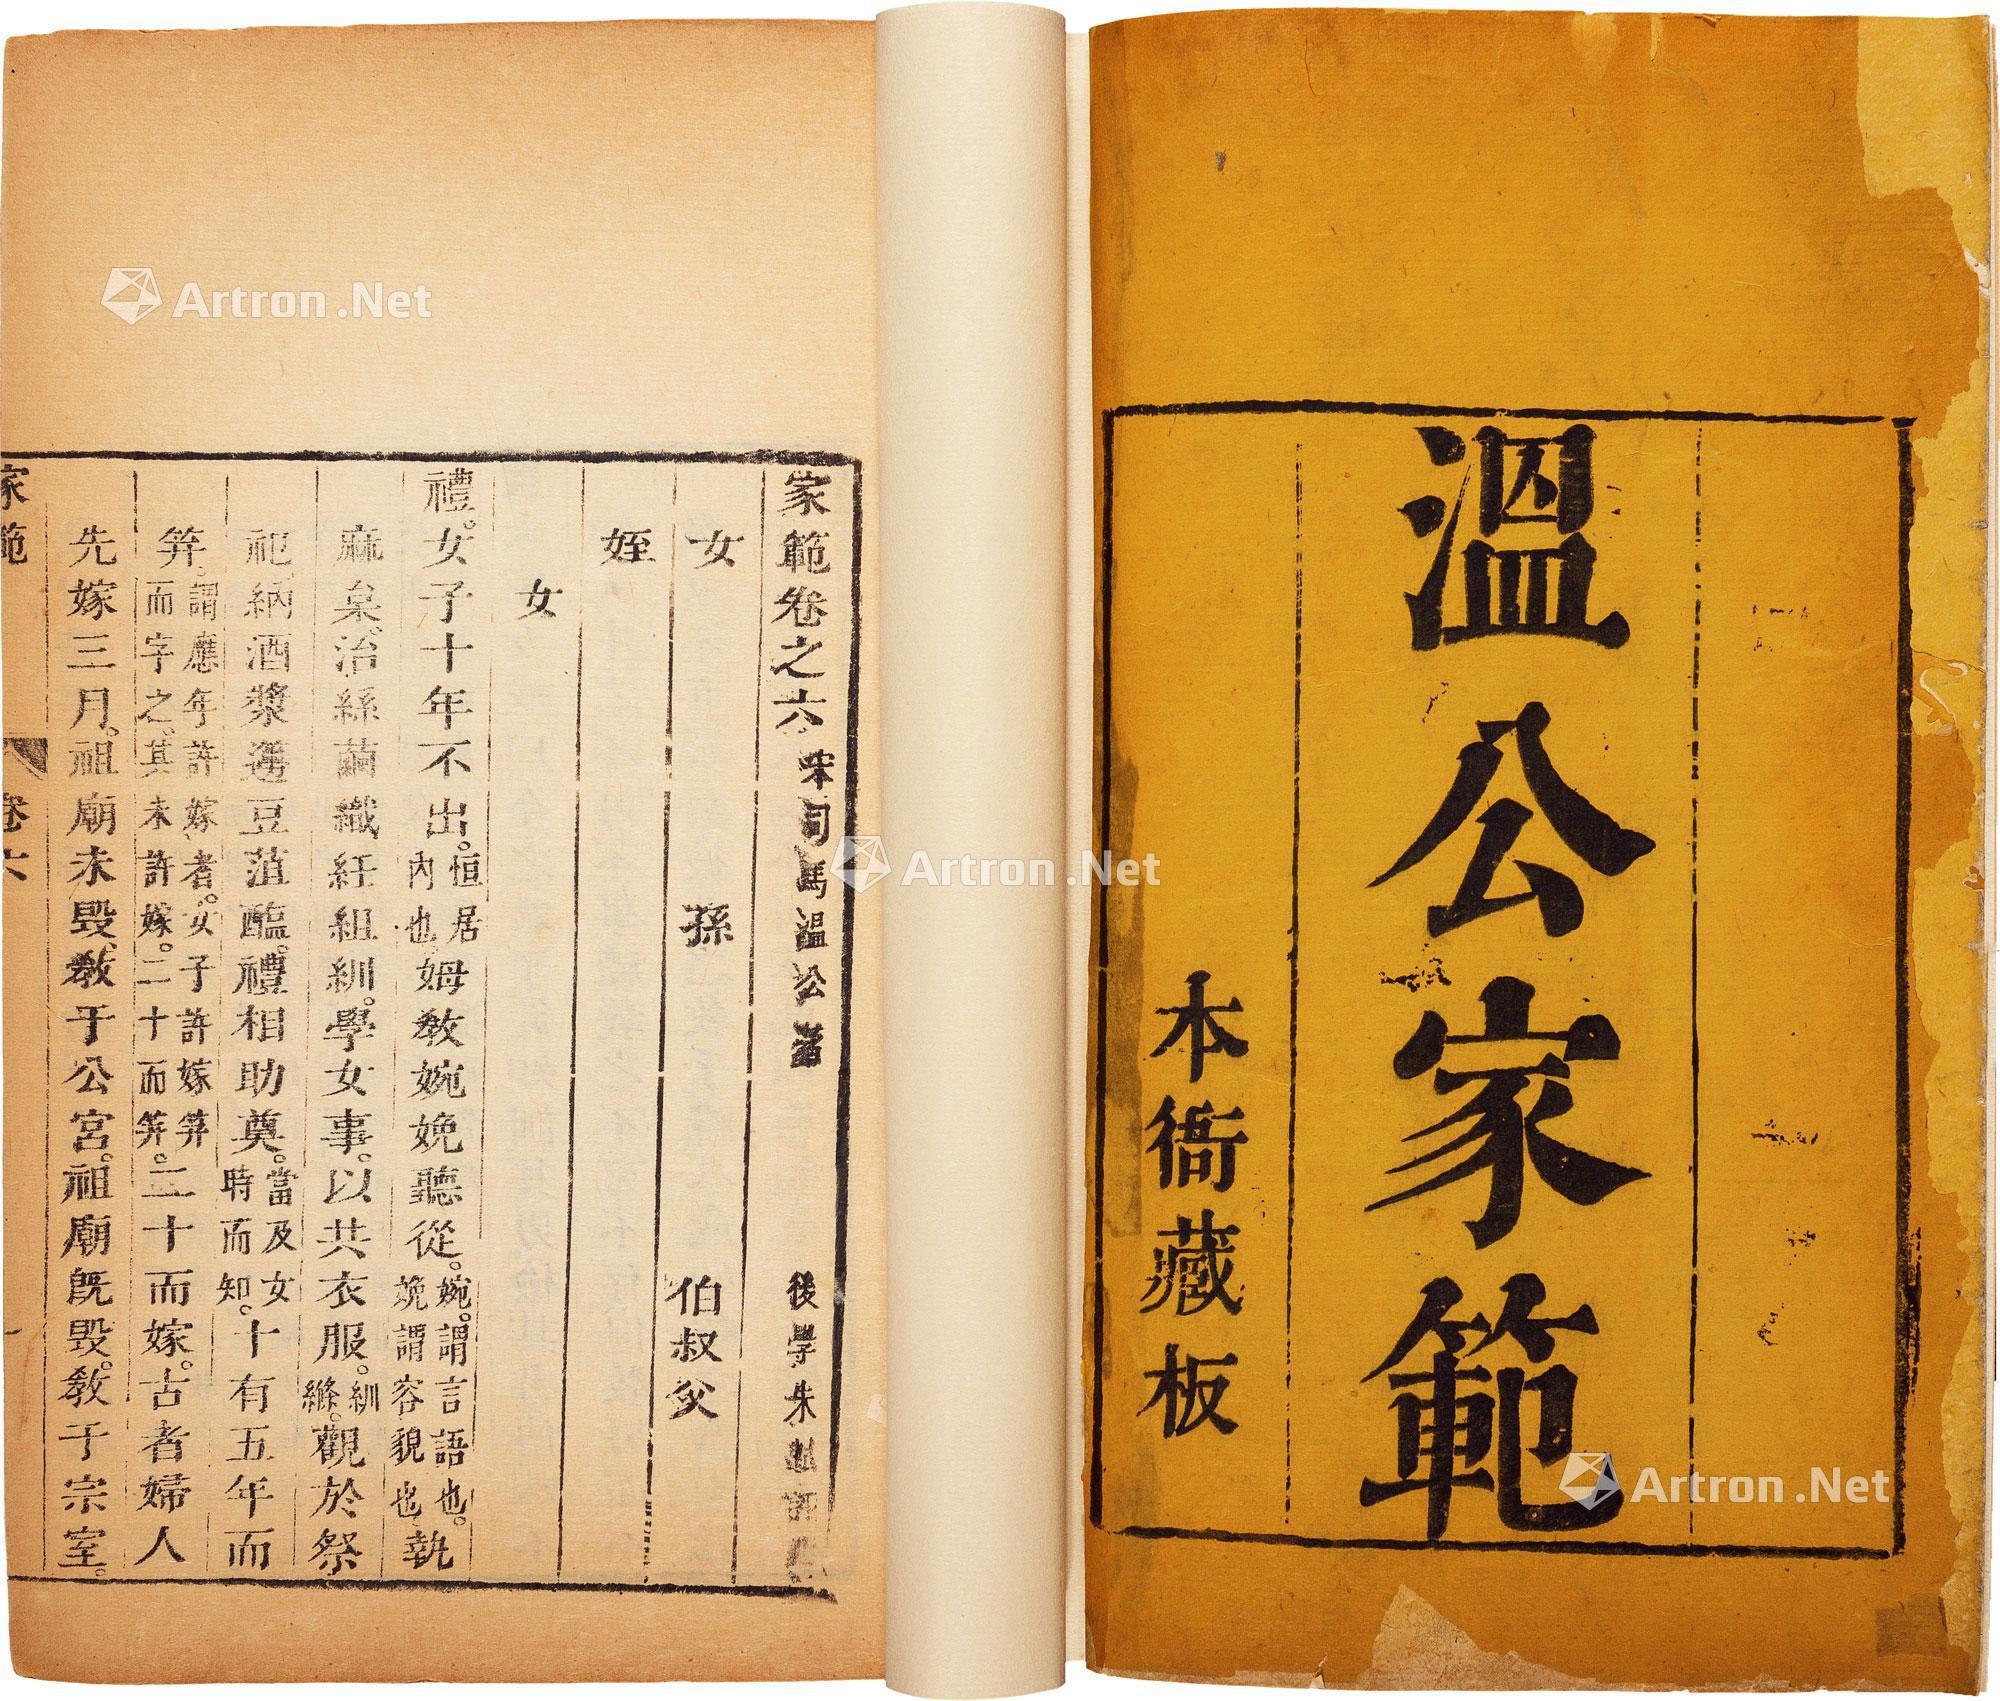 溫公家範
本衙藏板
家範卷之六 宋司馬溫公著 後學朱
女 孫 伯叔父
姪
女
禮。女子十年不出。恒居內也。姆教婉娩聽從。婉。謂言語也。娩謂容貌也。執
麻枲。治絲繭織紝組紃。學女事。以共衣服。紃絛。觀於祭
祀納酒漿籩豆菹醢。禮相助奠。當及女時而知。十有五年而
筓。謂應年許嫁者。女子許嫁筓而字之。其未許嫁。二十而筓。二十而嫁。古者婦人
先嫁三月。祖廟未毀。教于公宮。祖廟既毀。教于宗室。
家範 卷六 一
Artron.Net
Artron.Net
Artron.Net